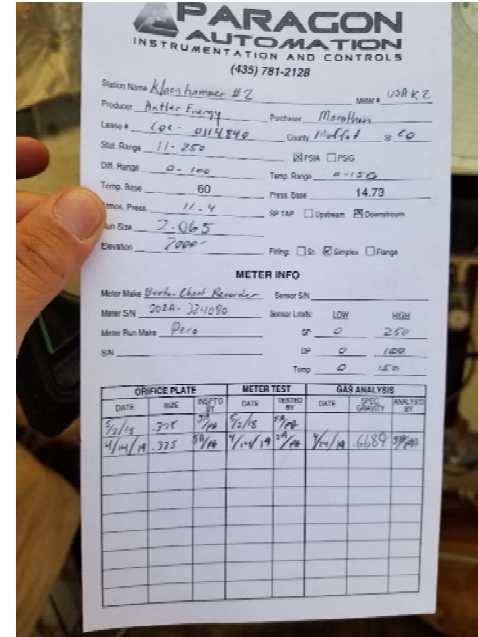 PARAGON
AUTOMATION
INSTRUMENTATION AND CONTROLS
(435) 781-2128
Station Name Klornhammer #2 Meter #
Producer Antler Energy Purchaser Marathon
Lease # COC- 0114840 County Moffat St CO
Stat. Range 11-250 ☒PSIA ☐PSIG
Diff. Range 0-100 Temp. Range 0-150
Temp. Base 60 Press. Base 14.73
Atmos. Press. 11.4 SP TAP ☐Upstream ☒Downstream
Run Size 2.065
Elevation 7000' Fitting: ☐Sr. ☒Simplex ☐Flange
METER INFO
Meter Make Barton Chart Recorder Sensor S/N
Meter S/N 202A-324080 Sensor Limits: LOW HIGH
Meter Run Make Peco SP 0 250
S/N DP 0 100
Temp 0 150
ORIFICE PLATE METER TEST GAS ANALYSIS
DATE SIZE INSPTD BY DATE TESTED BY DATE SPEC. GRAVITY ANALYSD BY
5/2/18 .375 5/2/18
4/14/19 .375 4/14/19 4/14/19 .6689